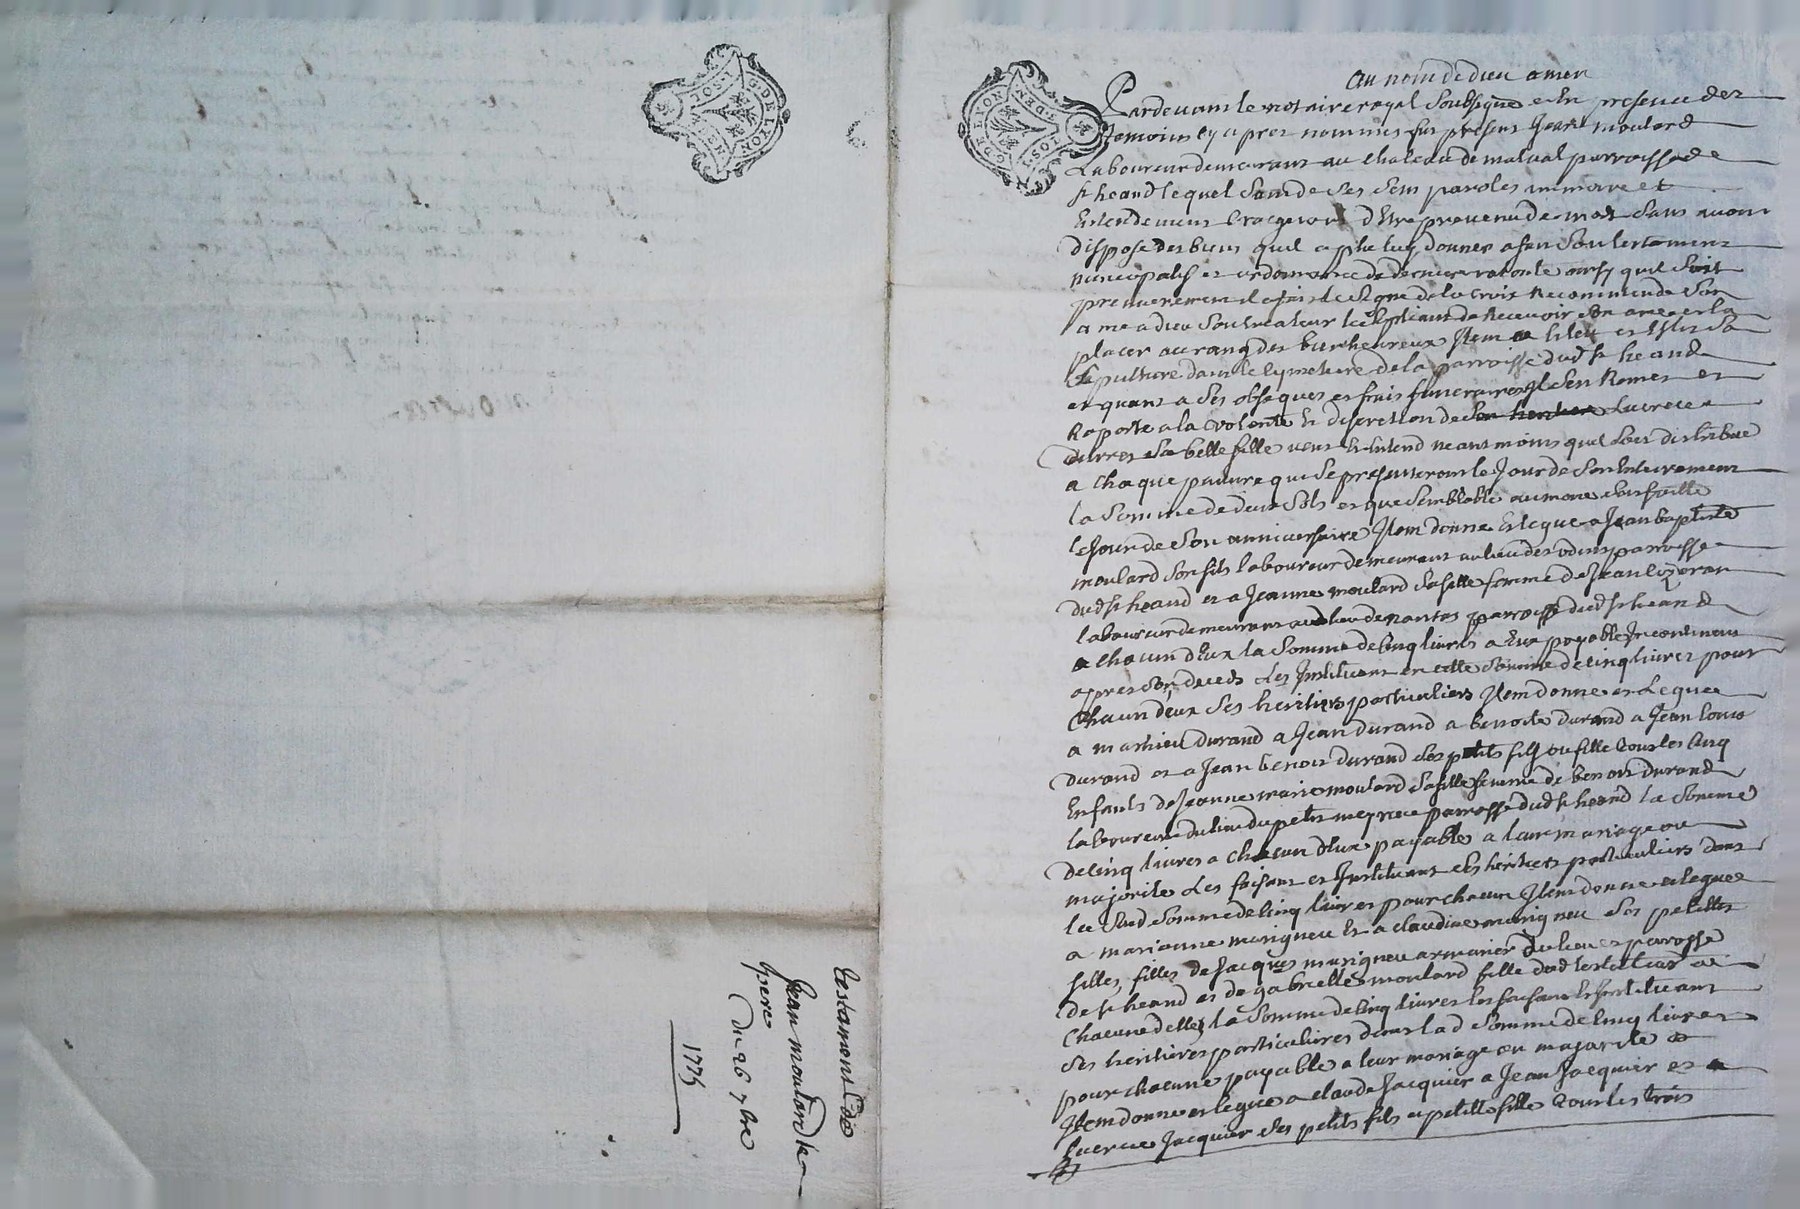 G. DE LYON
DEN. IOS. 1
G. DE LYON
DEN. IOS. 1
testament de
Jean moulard le
pere
Du 26 7bre
1775
au nom de dieu amen
Pardevant le notaire royal soubsigné et En presence des
temoins cy apres nommés fut present Jean moulard
Laboureur demeurant au chateau de malval parroisse de
st heand lequel sain de ses sens paroles memoire et
Entendement craignant d'Etre prevenu de mort sans avoir
disposé des biens quil a plu luy donner a fait son testament
nuncupatif et ordonnance de derniere volonté ainsy quil suit
premierement a fait le signe de la croix Recommandé son
ame a dieu son createur le supliant de Recevoir son ame et la
placer au rang des bienheureux Item a Eleu et Elit sa
sepulture dans le cymetiere de la parroisse dud st heand
et quant a ses obseques et frais funeraires Il s'en Remet et
Raporte a la volonté Et discretion de son heritiere Lucrece
sa belle fille veut Et Entend neantmoins quil soit distribué
a chaque pauvre qui se presenteront le Jour de son Enterrement
la somme de deux sols et que semblable aumone soit faitte
le Jour de son anniversaire Item donne Et legue a Jean baptiste
moulard son fils laboureur demeurant au lieu des parroisse
dud st heand et a Jeanne moulard sa fille femme de Jean
laboureur demeurant au lieu de nantas parroisse dud st heand
a chacun d'Eux la somme de cinq livres a Eux payable Incontinent
apres son deceds les Instituant en cette somme de cinq livres pour
chacun d'eux ses heritiers particuliers Item donne et legue
a mathieu durand a Jean durand a benoite durand a Jean louis
durand et a Jean benoit durand ses petits fils ou fille tous les cinq
Enfants de Jeanne marie moulard sa fille femme de benoit durand
laboureur du lieu du petit parroisse dud st heand la somme
de cinq livres a chacun d'Eux payables a leur mariage ou
majorité les faisant et Instituant ses heritiers particuliers dans
la sud somme de cinq livres pour chacun Item donne et legue
a marianne marigneu Et a claudine marigneu ses petittes
filles, filles de Jacques marigneu armurier du lieu et parroisse
de st heand et de gabrielle moulard fille dud testateur a
chacune d'elles la somme de cinq livres les faisant Et Instituant
ses heritieres particulieres dans lad somme de cinq livres
pour chacune payable a leur mariage ou majorité
Item donne et legue a claude Jacquier a Jean Jacquier et a
Lucrece Jacquier ses petits fils et petitte fille tous les trois